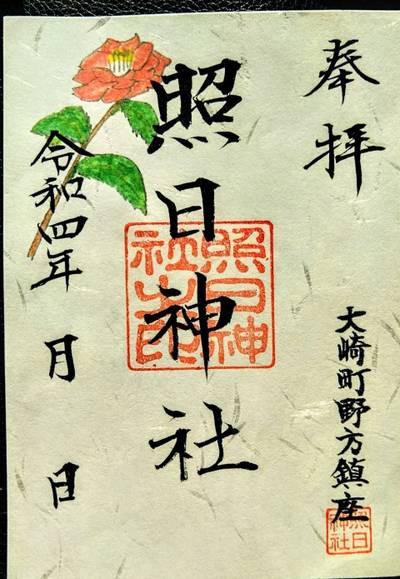 奉拝
大崎町野方鎮座
照日神社
照日神社之印
令和四年 月 日
照日神社